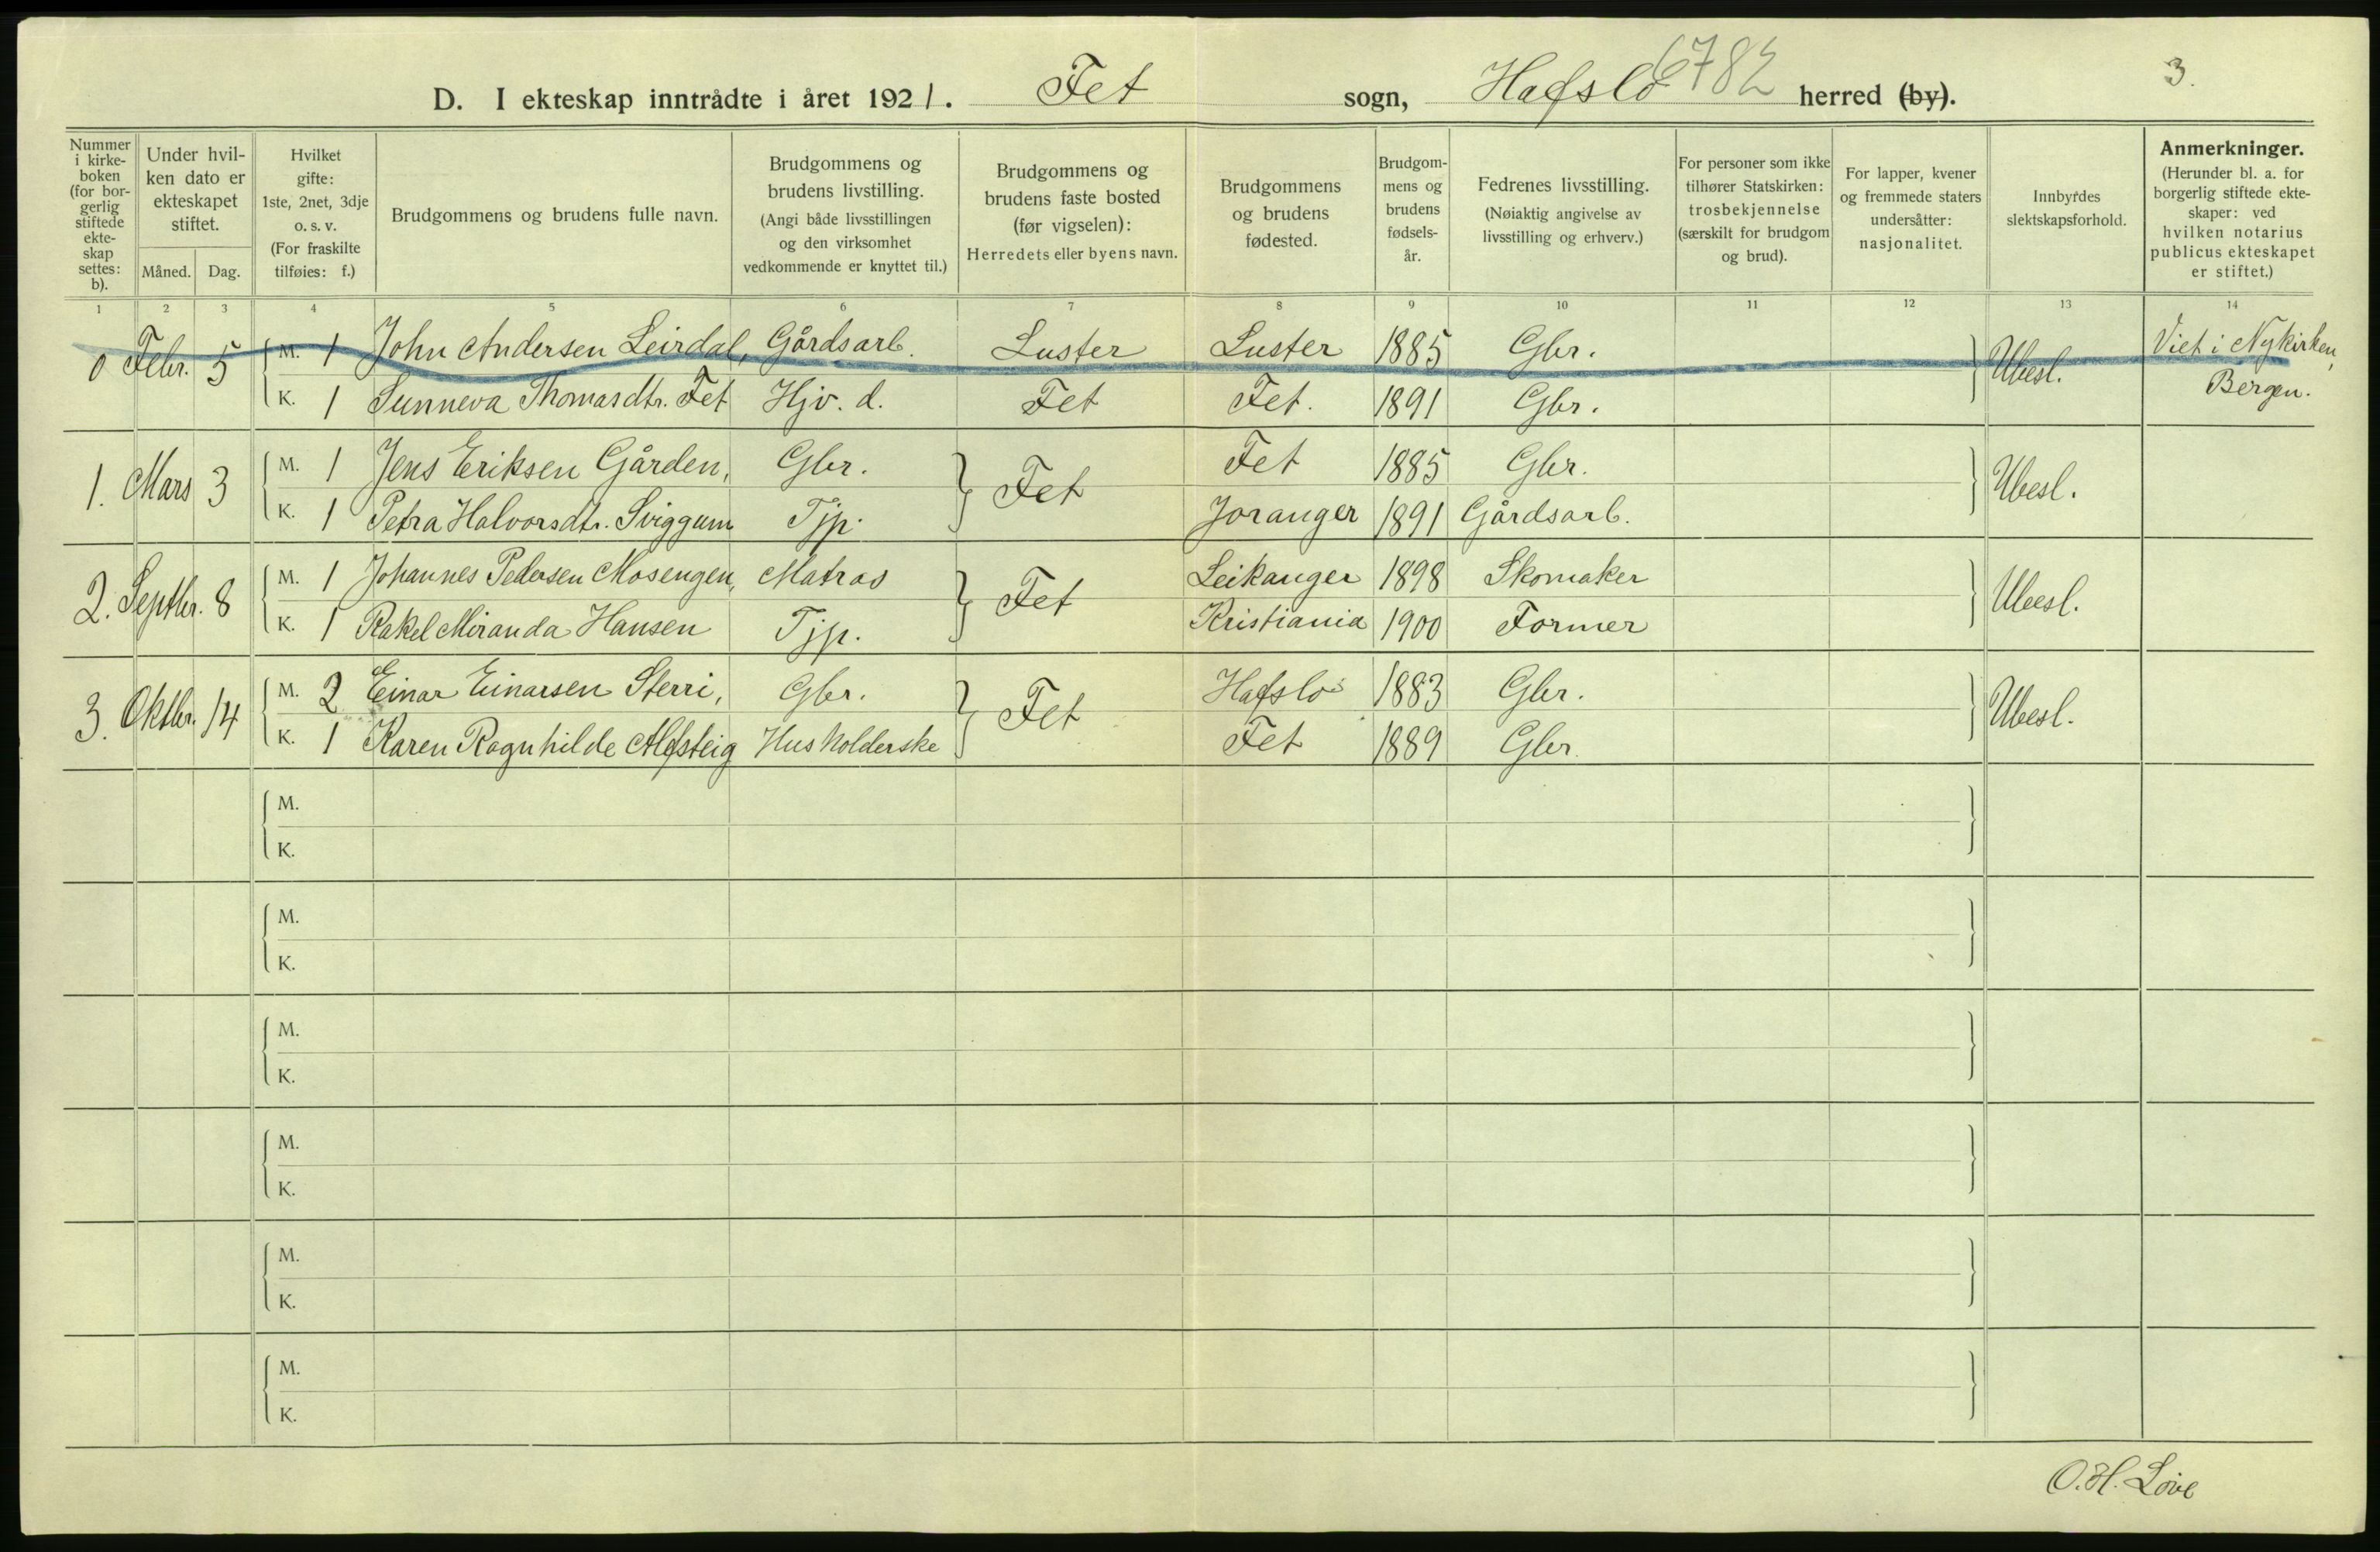 6782
3.
D. I ekteskap inntrådte i året 1921. Fet sogn, Hafslo herred (by).
Nummer i kirkeboken (for borgerlig stiftede ekteskap settes: b).
Under hvilken dato er ekteskapet stiftet.
Måned. Dag.
Hvilket gifte: 1ste, 2net, 3dje o. s. v. (For fraskilte tilføies: f.)
Brudgommens og brudens fulle navn.
Brudgommens og brudens livstilling. (Angi både livsstillingen og den virksomhet vedkommende er knyttet til.)
Brudgommens og brudens faste bosted (før vigselen): Herredets eller byens navn.
Brudgommens og brudens fødested.
Brudgommens og brudens fødselsår.
Fedrenes livsstilling. (Nøiaktig angivelse av livsstilling og erhverv.)
For personer som ikke tilhører Statskirken: trosbekjennelse (særskilt for brudgom og brud).
For lapper, kvener og fremmede staters undersåtter: nasjonalitet.
Innbyrdes slektskapsforhold.
Anmerkninger. (Herunder bl. a. for borgerlig stiftede ekteskaper: ved hvilken notarius publicus ekteskapet er stiftet.)
1 2 3 4 5 6 7 8 9 10 11 12 13 14
0 Febr. 5 M. 1 John Andersen Leirdal, Gårdsarb. Luster Luster 1885 Gbr. Ubesl. Viet i Nykirken,
K. 1 Sunneva Thomasdtr. Fet Hjv. d. Fet Fet. 1891 Gbr. Bergen.
1. Mars 3 M. 1 Jens Eriksen Gården, Gbr. Fet Fet 1885 Gbr. Ubesl.
K. 1 Petra Halvorsdtr. Sviggum Tjp. Joranger 1891 Gårdsarb.
2. Septbr. 8 M. 1 Johannes Pedersen Mosengen, Matros Fet Leikanger 1898 Skomaker Ubesl.
K. 1 Rakel Miranda Hansen Tjp. Kristiania 1900 Former
3. Oktbr. 14 M. 2 Einar Einarsen Sterri, Gbr. Fet Hafslo 1883 Gbr. Ubesl.
K. 1 Karen Ragnhilde Alfsteig Husholderske Fet 1889 Gbr.
M.
K.
M.
K.
M.
K.
M.
K.
M.
K.
M.
K.
O. H. Løve